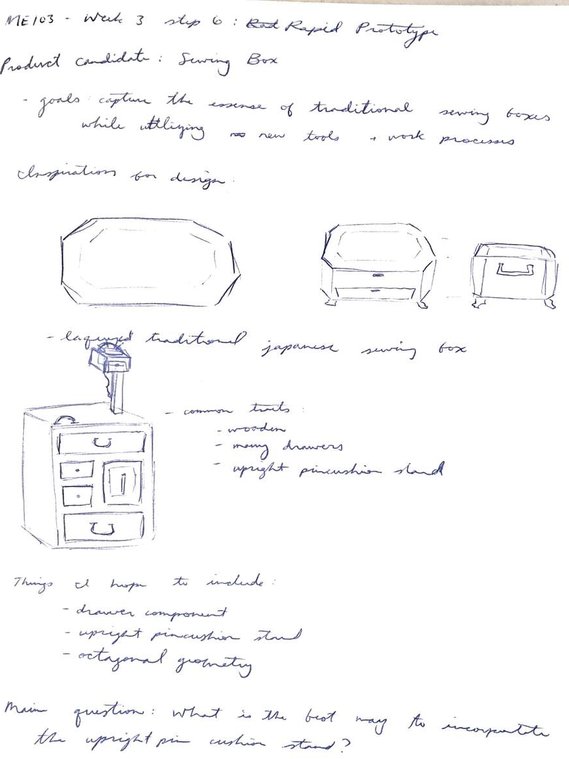 ME103 - Week 3 step 6: Rapid Prototype
Product candidate: Sewing Box
- goals: capture the essence of traditional sewing boxes
while utilizing new tools + work processes
Inspirations for design:
- laquered traditional japanese sewing box
- common traits:
- wooden
- many drawers
- upright pincushion stand
Things I hope to include:
- drawer component
- upright pincushion stand
- octagonal geometry
Main question: What is the best way to incorporate
the upright pin cushion stand?